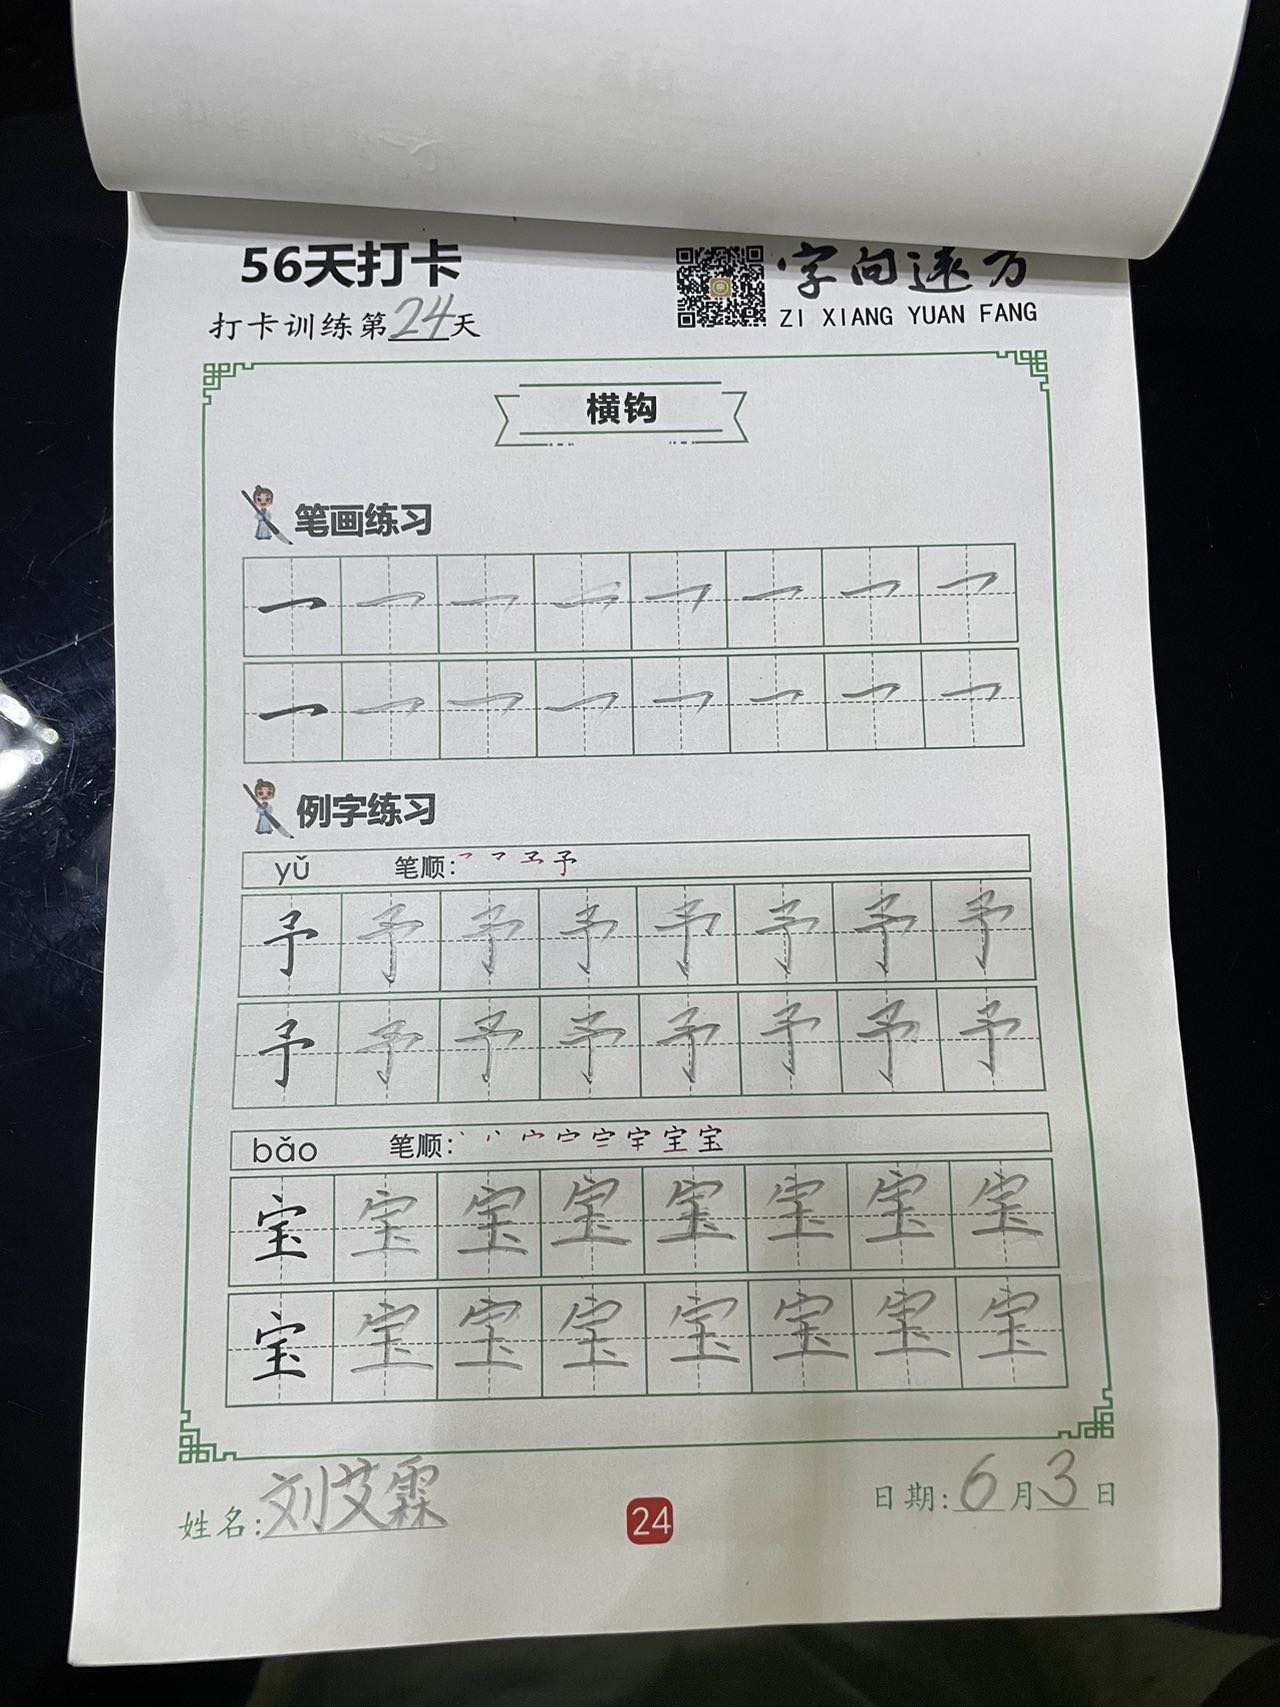 56天打卡
打卡训练第24天
字向远方
ZI XIANG YUAN FANG
横钩
笔画练习
例字练习
yǔ 笔顺: ㇖ 予
予 予 予 予 予 予 予 予
予 予 予 予 予 予 予 予
bǎo 笔顺: 丶 宀 宝
宝 宝 宝 宝 宝 宝 宝 宝
宝 宝 宝 宝 宝 宝 宝 宝
姓名:刘艾霖
24
日期:6月3日